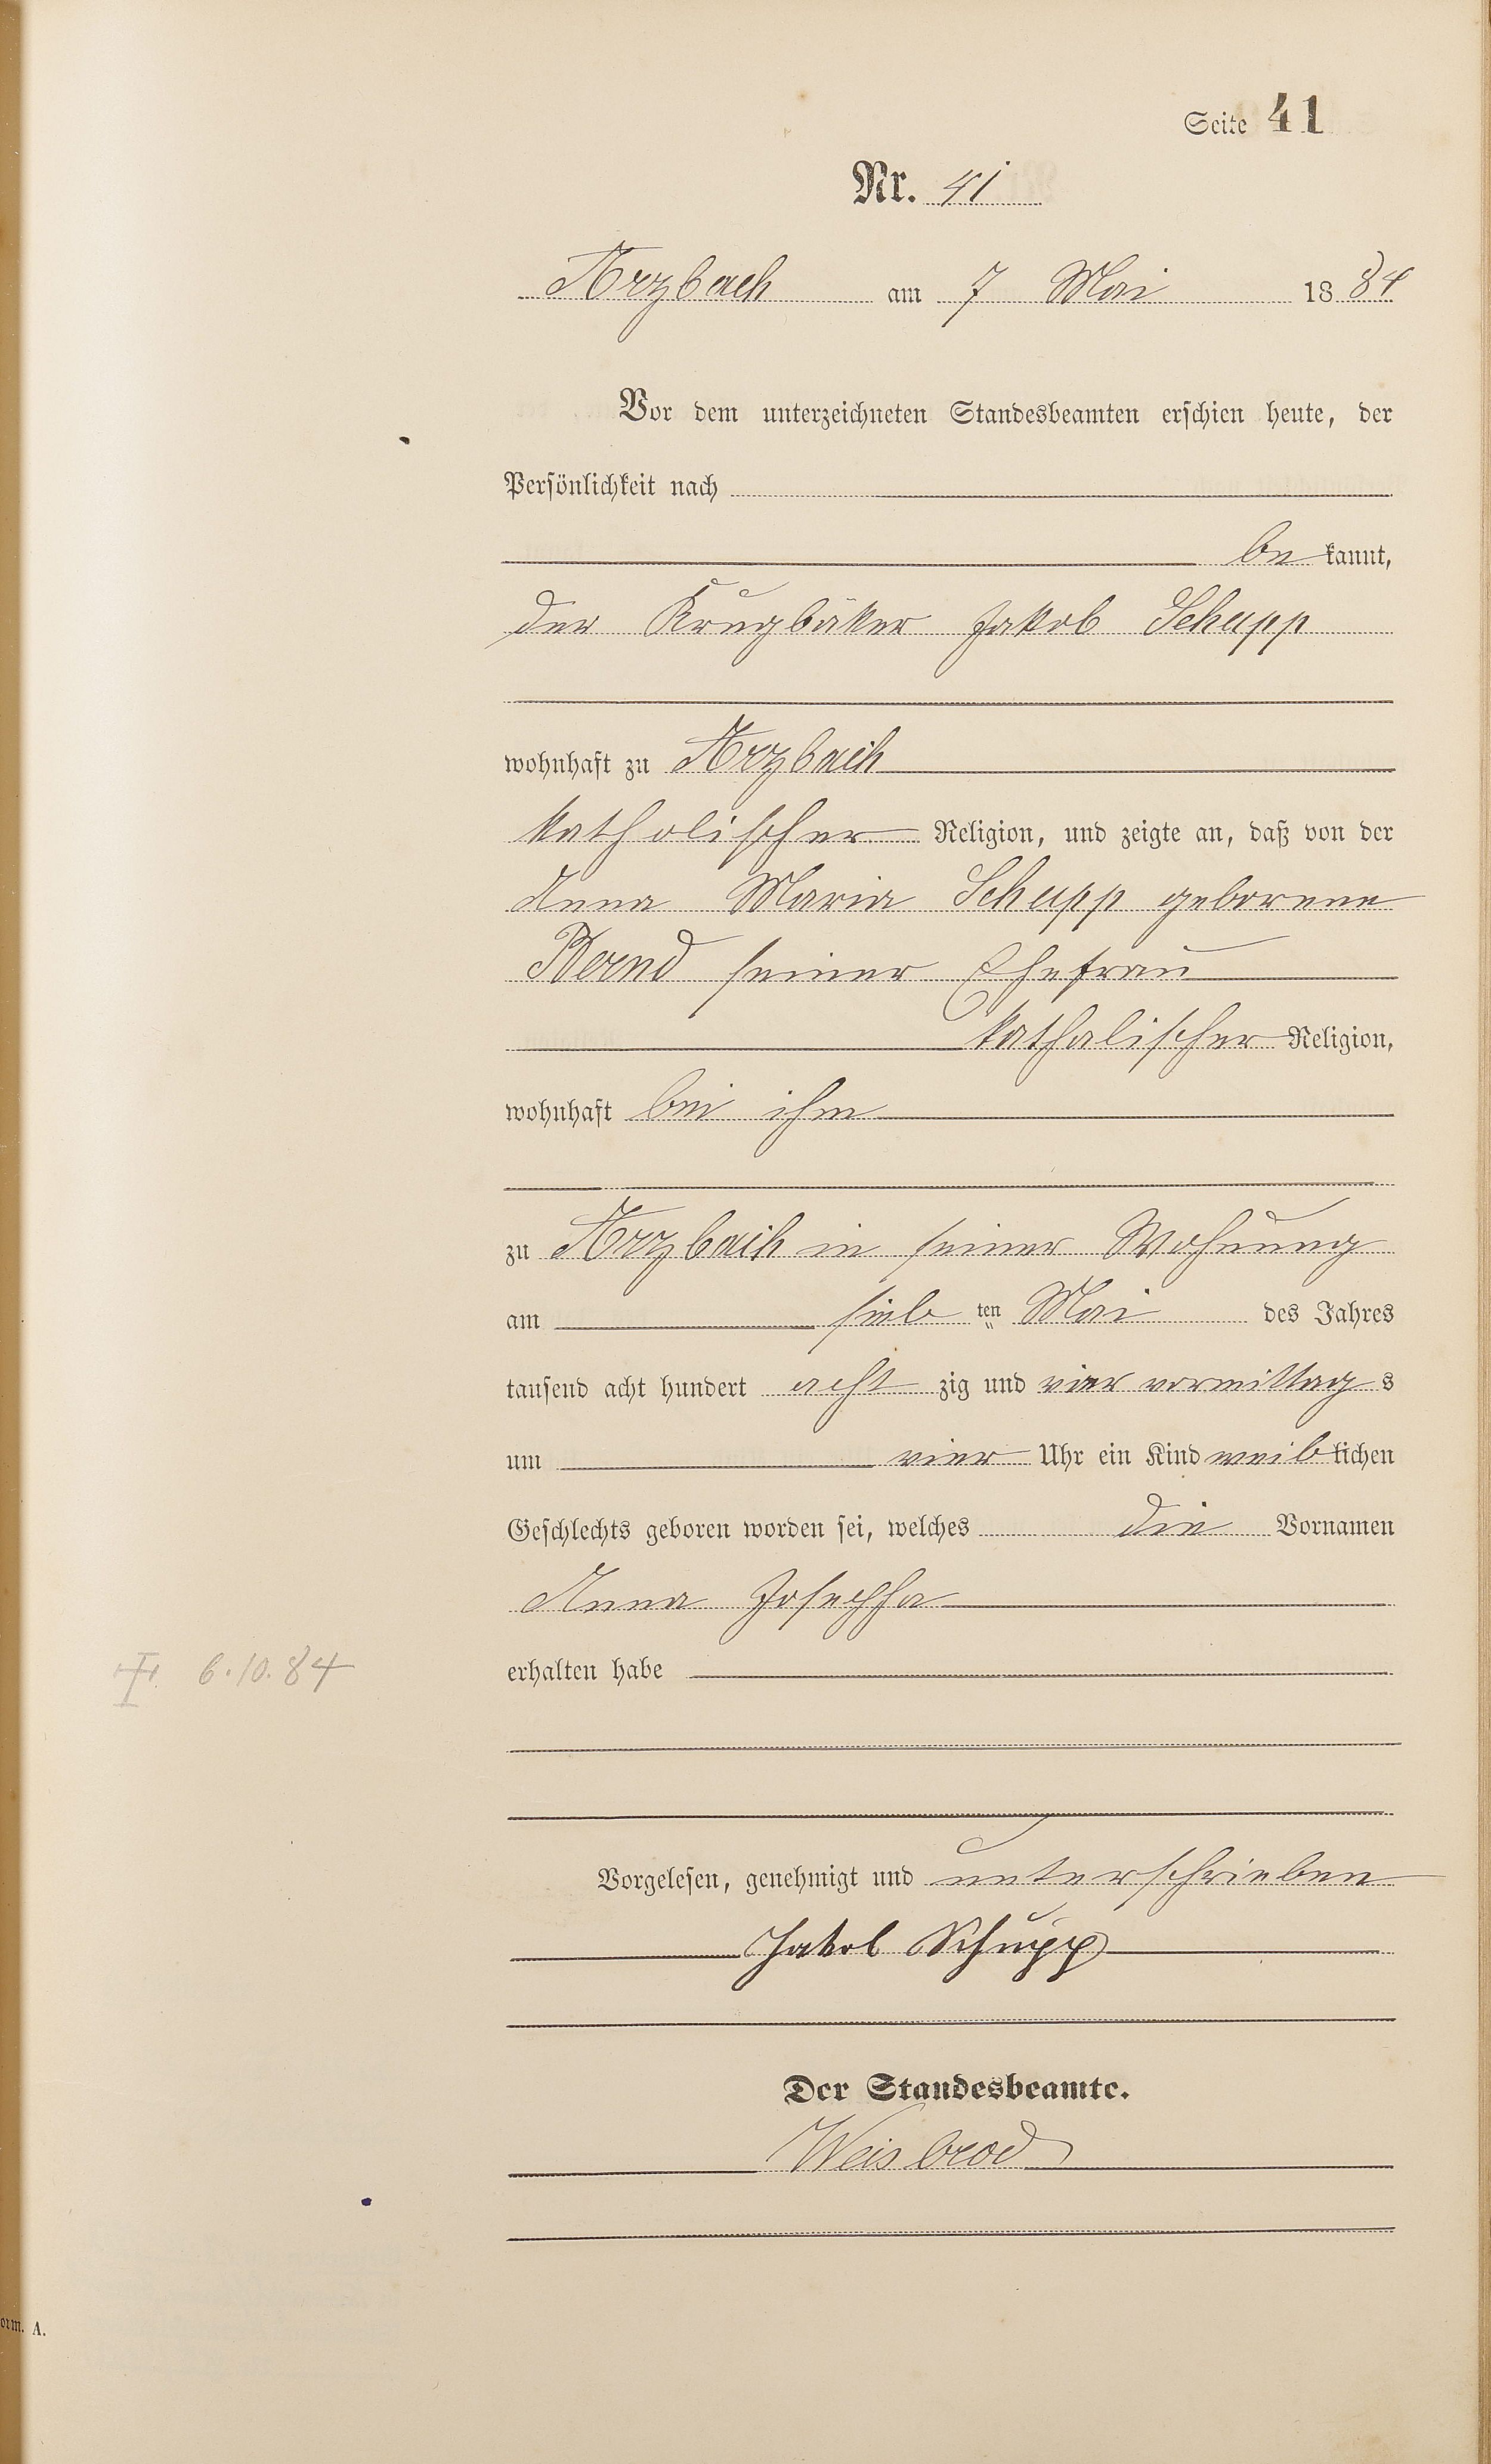 Seite 41
Nr. 41
Arzbach am 7 Mai 1884
Vor dem unterzeichneten Standesbeamten erschien heute, der
Persönlichkeit nach
bekannt,
der Krugbäker Jakob Schupp
wohnhaft zu Arzbach
katholischer Religion, und zeigte an, daß von der
Anna Maria Schupp geborene
Bernd seiner Ehefrau
katholischer Religion,
wohnhaft bei ihm
zu Arzbach in seiner Wohnung
am sieb ten Mai des Jahres
tausend acht hundert acht zig und vier vormittag s
um vier Uhr ein Kind weiblichen
Geschlechts geboren worden sei, welches die Vornamen
Anna Josepha
erhalten habe
6.10.84
Vorgelesen, genehmigt und unterschrieben
Jakob Schupp
Der Standesbeamte.
Weisbrod
orm. A.